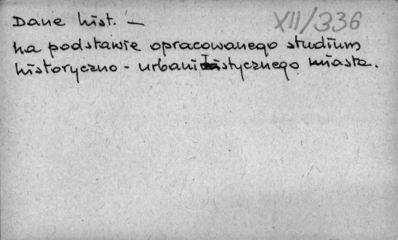 Dane hist. — XII/336
na podstawie opracowanego studium
historyczno - urbanistycznego miasta.